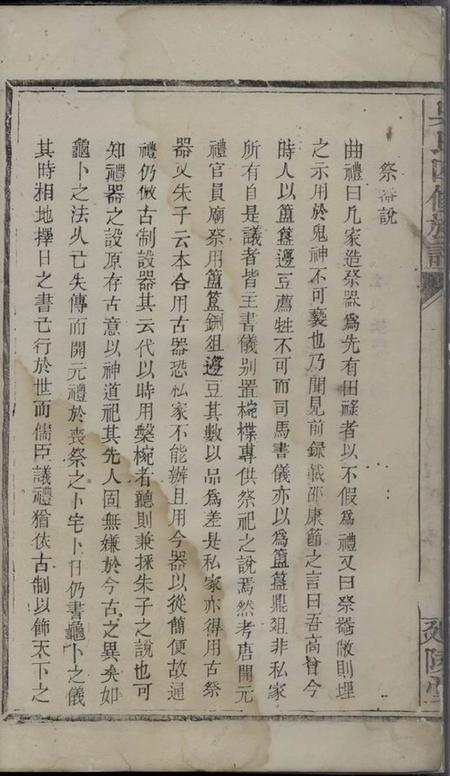 祭器說
曲禮曰凡家造祭器爲先有田祿者以不假爲禮又曰祭器敝則埋
之示用於鬼神不可褻也乃聞見前録載邵康節之言曰吾高曾今
時人以簠簋籩豆薦牲不可而司馬書儀亦以爲簠簋鼎俎非私家
所有自是議者皆主書儀别置椀楪專供祭祀之說焉然考唐開元
禮官員廟祭用簠簋鉶俎籩豆其數以品爲差是私家亦得用古祭
器又朱子云本合用古器恐私家不能辦且用今器以從簡便故通
禮仍倣古制設器其云代以時用槃椀者聽則兼採朱子之說也可
知禮器之設原存古意以神道祀其先人固無嫌於今古之異矣如
龜卜之法久已失傳而開元禮於喪祭之卜宅卜日仍書龜卜之儀
其時相地擇日之書已行於世而儒臣議禮猶依古制以飾太下之
吳氏四修族譜
延陵堂